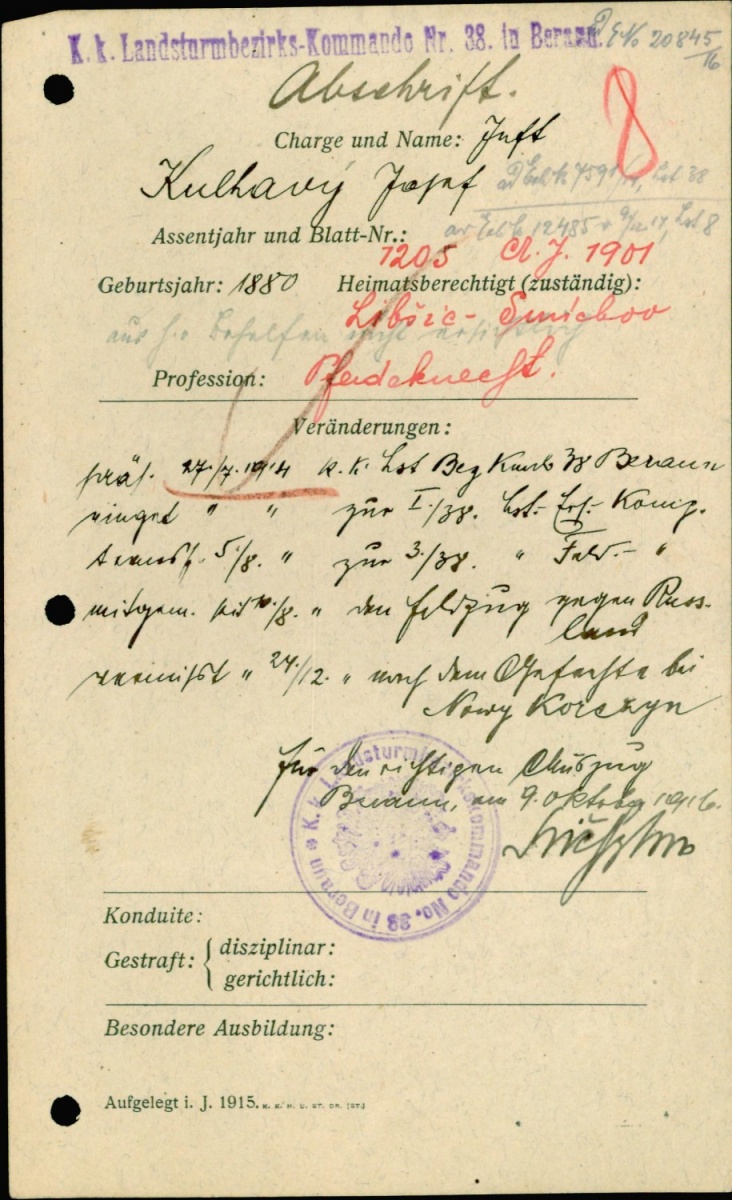 K. k. Landsturmbezirks-Kommando Nr. 38. in Beraun.
E No 20845/16
Abschrift.
8
Charge und Name: Inft
Kulhavý Josef
Assentjahr und Blatt-Nr.:
1205 A. J. 1901
Geburtsjahr: 1880 Heimatsberechtigt (zuständig):
Libšic - Smichov
aus h.o. Behelfen nicht ersichtlich
Profession: Pferdeknecht.
Veränderungen:
präs. 27./7. 1914 k. k. Lst Bez Kmdo 38 Beraun
einget " " zur I./38. Lst.- Ers.- Komp.
transf. 5./8. " zur 3./38. " Feld.- "
mitgem. seit /8. " den Feldzug gegen Russ-
land
vermisst " 24./12. " nach dem Gefechte bei
Nowy Korczyn
für den richtigen Auszug
Beraun, am 9. Oktober 1916.
K. k. Landsturmbezirkskommando No. 38 in Beraun
Konduite:
Gestraft: { disziplinar:
gerichtlich:
Besondere Ausbildung:
Aufgelegt i. J. 1915. K. K. H. U. ST. DR. [ST.]